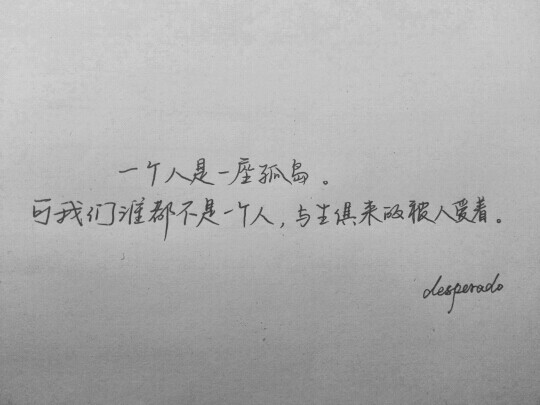 一个人是一座孤岛。
可我们谁都不是一个人，与生俱来的被人爱着。
desperado